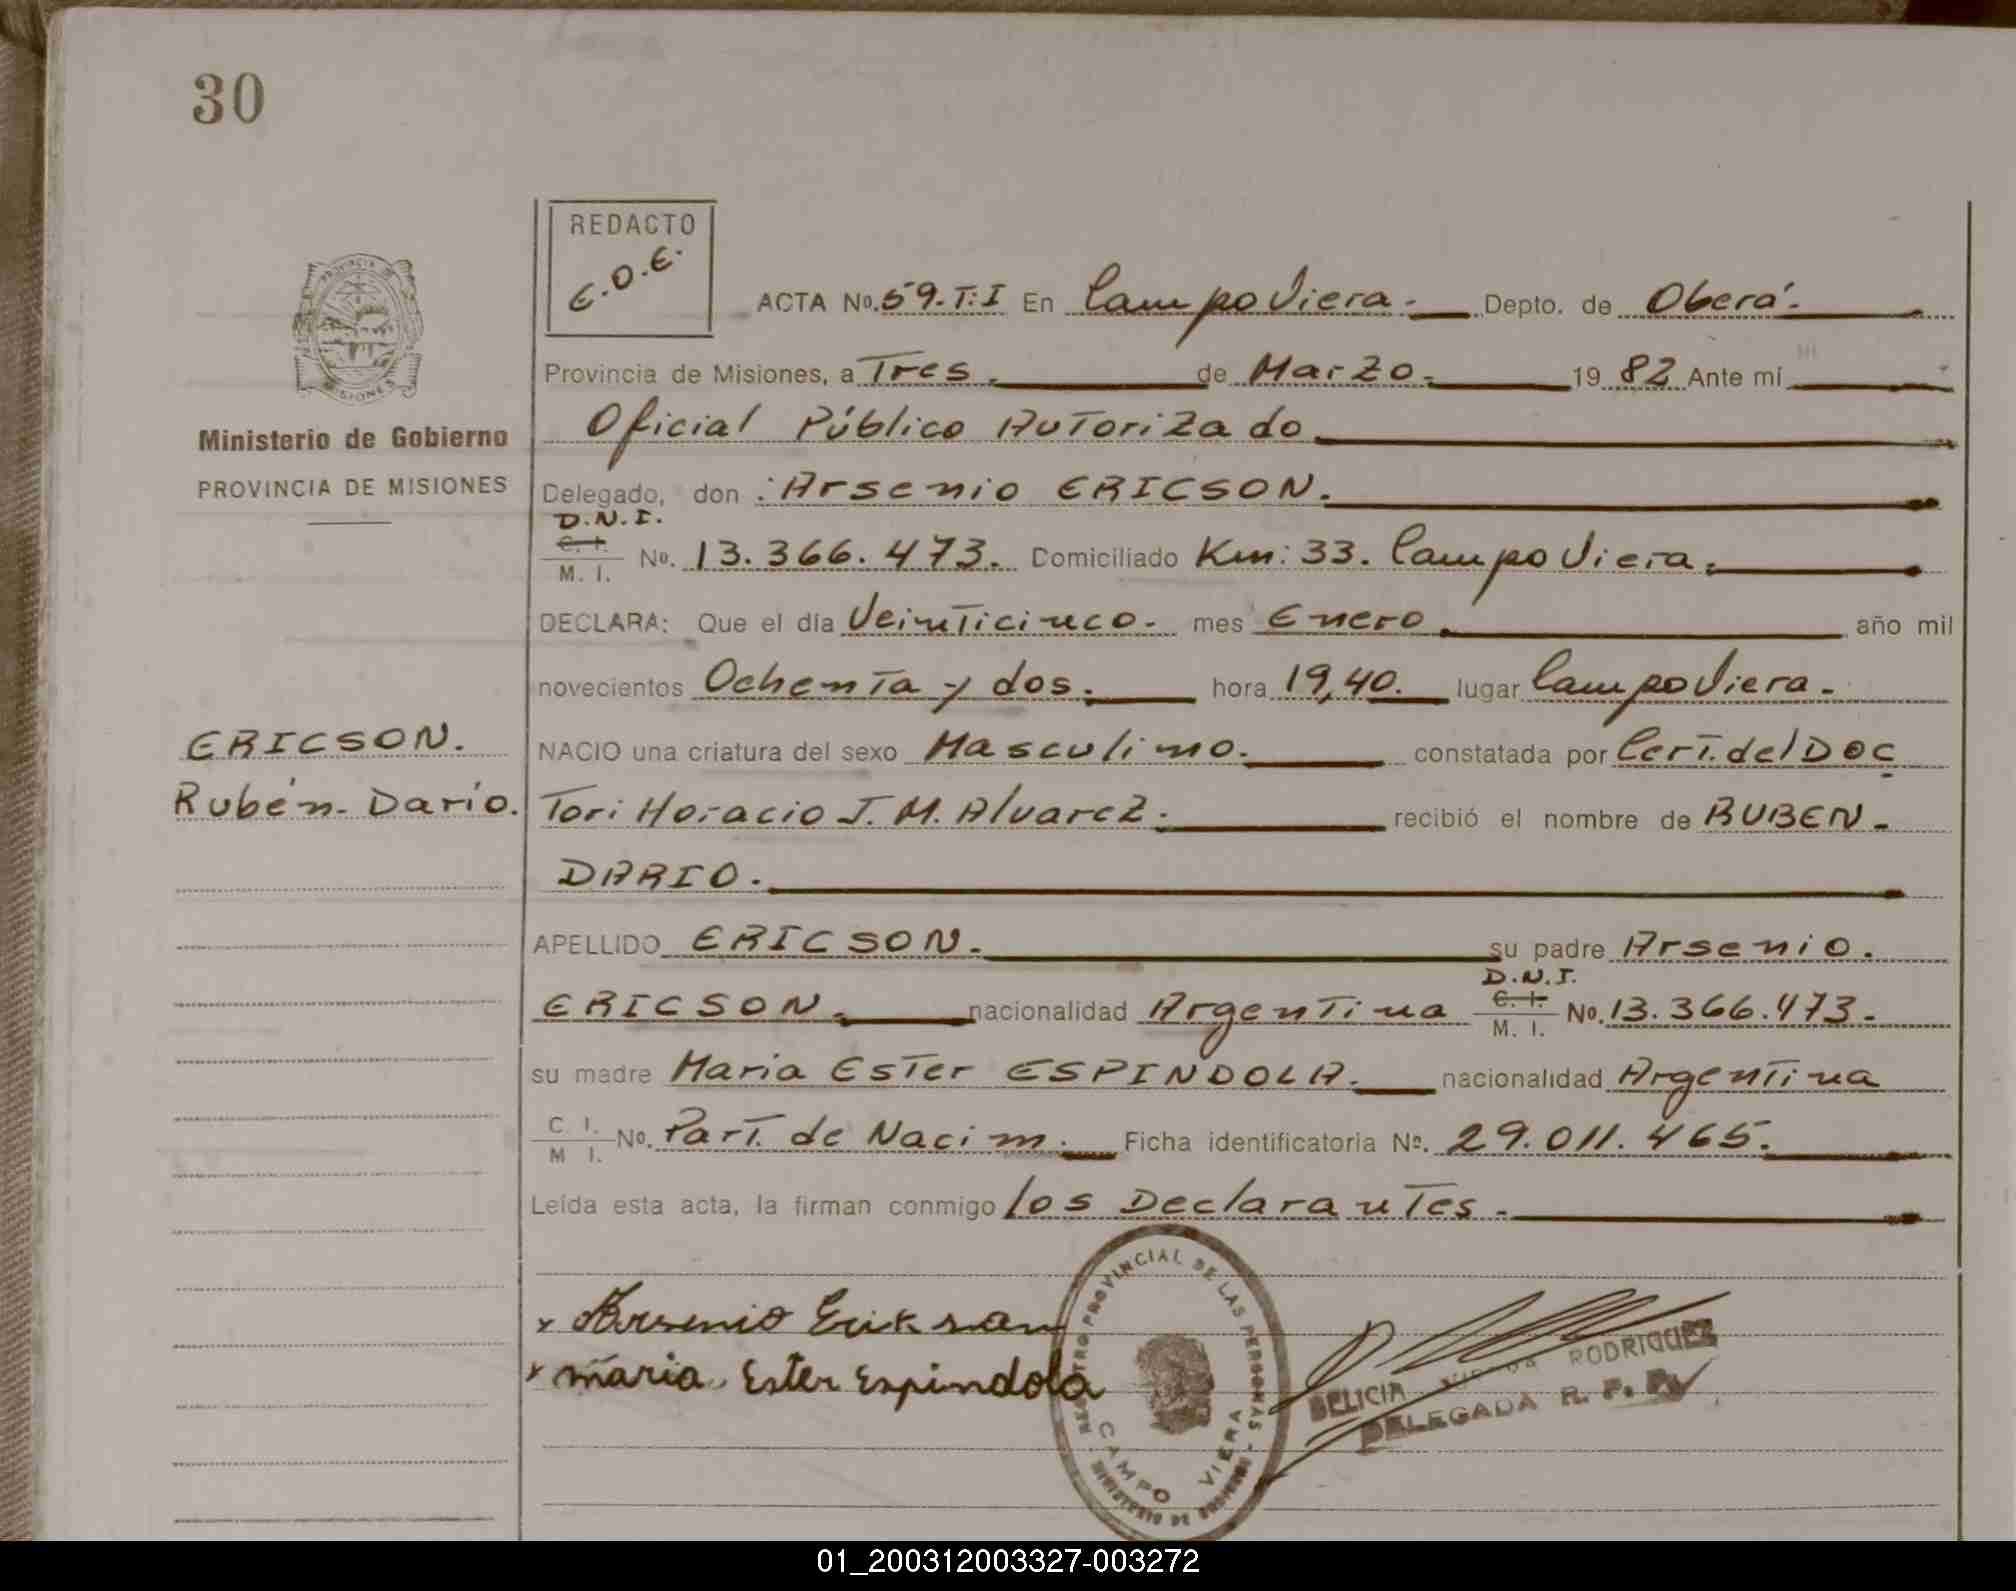 30
REDACTO
E.O.E.
PROVINCIA DE
MISIONES
Ministerio de Gobierno
PROVINCIA DE MISIONES
ACTA No. 59.T:I En Campo Viera. Depto. de Oberá.
Provincia de Misiones, a Tres. de Marzo. 19 82 Ante mí
Oficial Público Autorizado
Delegado, don : Arsenio ERICSON.
D.N.I.
C. I. / M. I. No. 13.366.473. Domiciliado Km: 33. Campo Viera.
DECLARA: Que el día Veinticinco. mes Enero año mil
novecientos Ochenta y dos. hora 19,40. lugar Campo Viera.
ERICSON.
Rubén Darío.
NACIO una criatura del sexo Masculino. constatada por Cert. del Doc
Tor: Horacio J. M. Alvarez. recibió el nombre de RUBEN
DARIO.
APELLIDO ERICSON. su padre Arsenio.
D.N.I.
ERICSON. nacionalidad Argentina C. I. / M. I. No. 13.366.473.
su madre Maria Ester ESPINDOLA. nacionalidad Argentina
C I. / M I. No. Part. de Nacim. Ficha identificatoria Nº. 29.011.465.
Leída esta acta, la firman conmigo los Declarantes.
x Arsenio Erikson
x maria Ester Espindola
REGISTRO PROVINCIAL DE LAS PERSONAS
CAMPO VIERA
RODRIGUEZ
DELEGADA R. P. P.
01_200312003327-003272